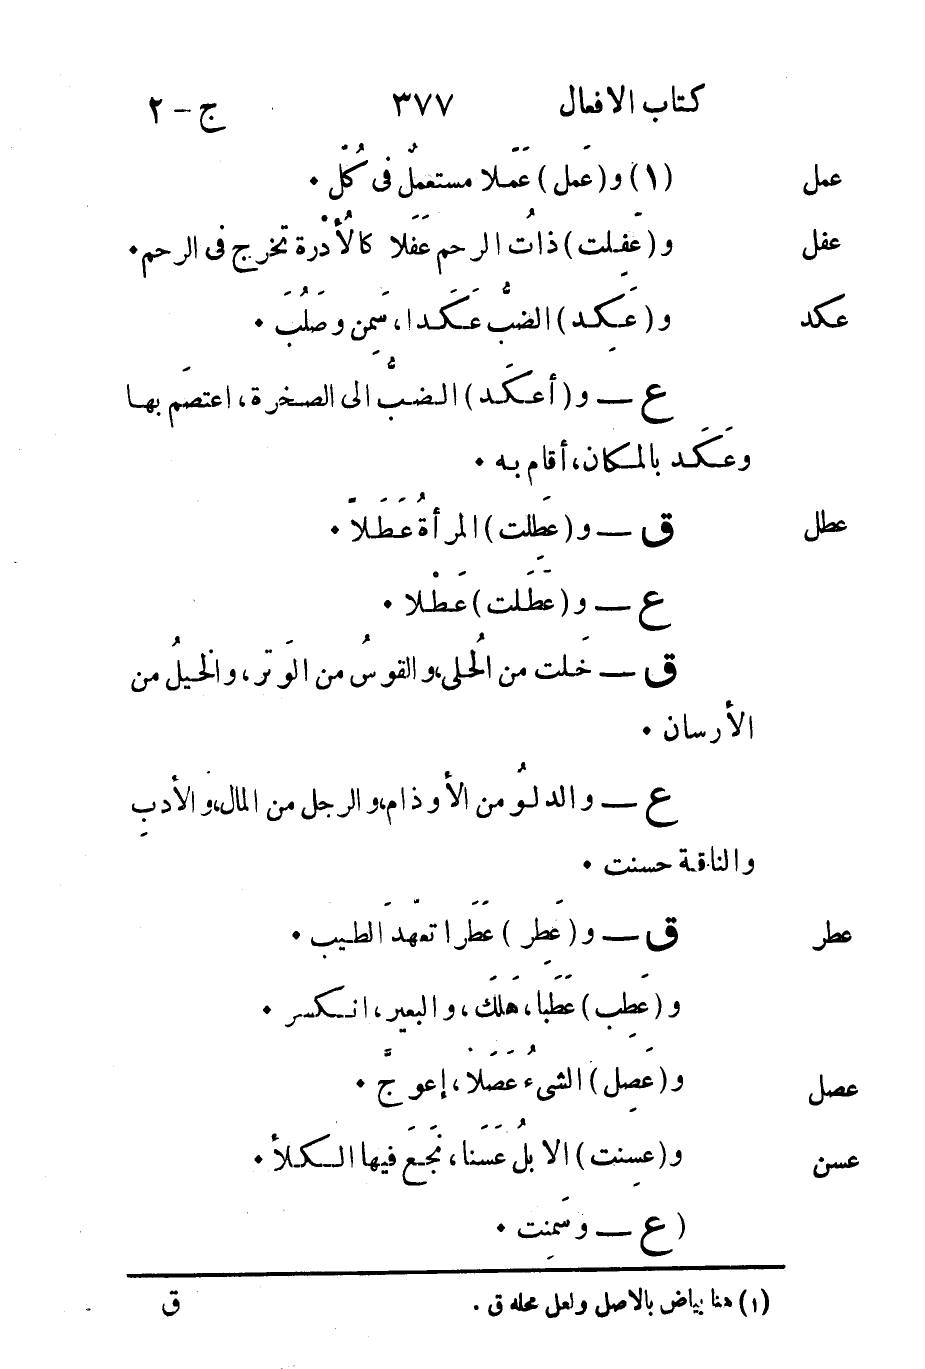 كتاب الافعال ٣٧٧ ج – ٢
عمل (١) و(عَمل) عَمَلا مستعملٌ فى كُلّ ٠
عفل و(عَفِلت) ذاتُ الرحم عَفَلا كالأُدْرة تخرج فى الرحم ٠
عكد و(عَكِد) الضبُّ عَكَدا، سَمِن وصَلُبَ ٠
ع — و(أعكَد) الضبُّ الى الصخرة، اعتصَم بها
وعَكَد بالمكان، أقام به ٠
عطل ق — و(عَطِلت) المرأةُ عَطَلاً ٠
ع — و(عَطَلت) عَطْلا ٠
ق — خَلت من الحُلى، والقوسُ من الوَتر، والخيلُ من
الأرسان ٠
ع — والدلوُ من الأوذام، والرجل من المال، والأدبِ
والناقة حسنت ٠
عطر ق — و(عَطِر) عَطَرا تعهّدَ الطيب ٠
و(عَطِب) عَطَبا، هَلَكَ، والبعير، انكسر ٠
عصل و(عَصِل) الشىءُ عَصَلا، إعوجَّ ٠
عسن و(عسِنت) الابلُ عَسَنا، نَجَعَ فيها الكلأ ٠
(ع — وسَمِنت ٠
(١) هنا بياض بالاصل ولعل محله ق . ق